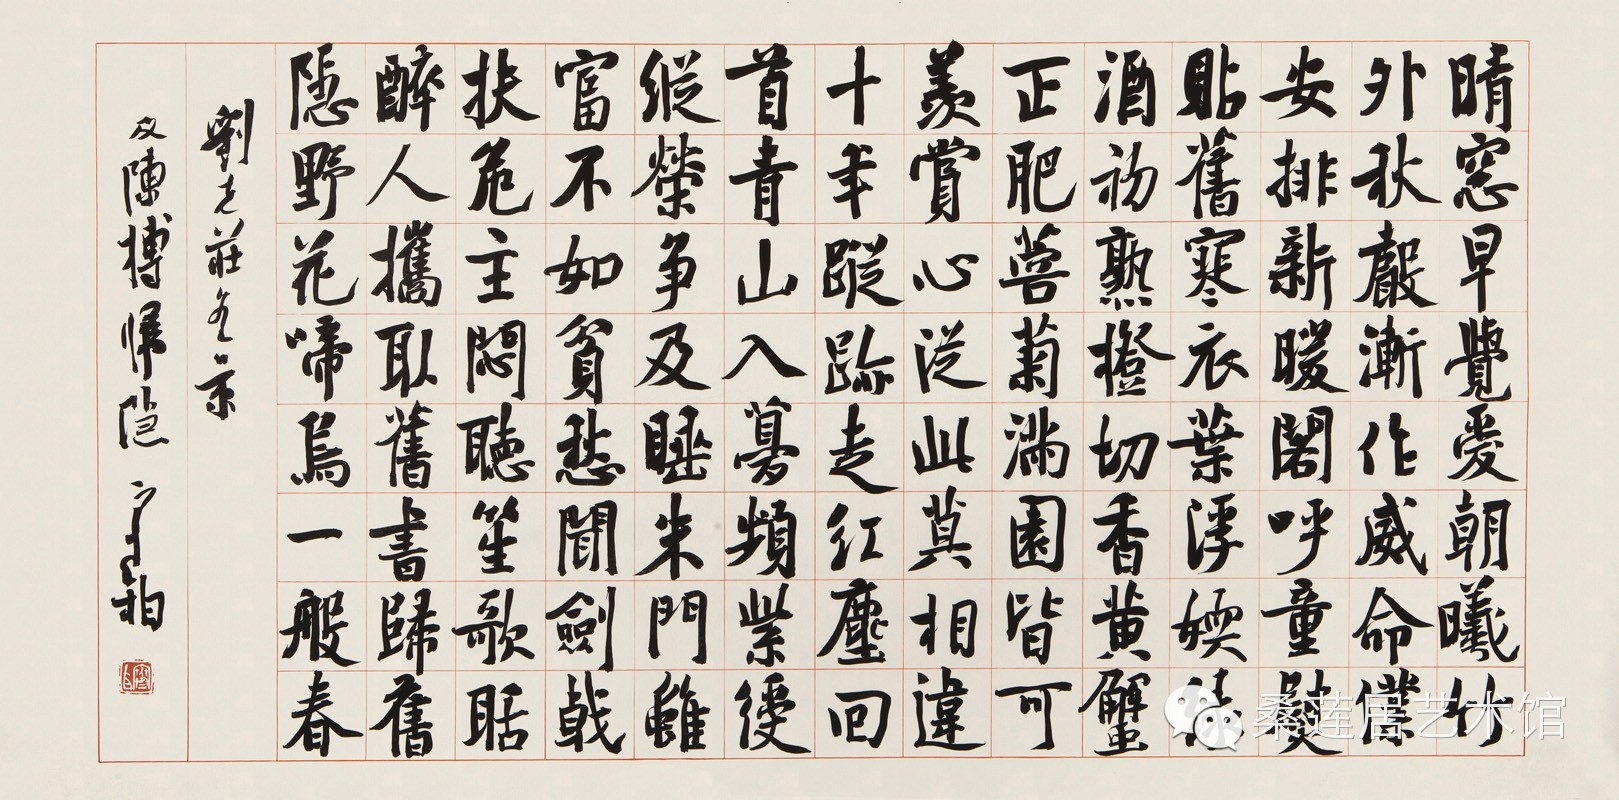 晴窓早覺愛朝曦竹
外秋聲漸作威命僕
安排新暖閣呼童熨
貼舊寒衣葉浮嫩綠
酒初熟橙切香黄蟹
正肥蓉菊滿園皆可
羡賞心從此莫相違
十年蹤跡走紅塵回
首青山入夢頻紫綬
縱榮争及睡朱門雖
富不如貧愁聞劍戟
扶危主悶聽笙歌聒
醉人攜取舊書歸舊
隱野花啼鳥一般春
劉克莊冬景
及陳摶歸隱
桑莲居艺术馆